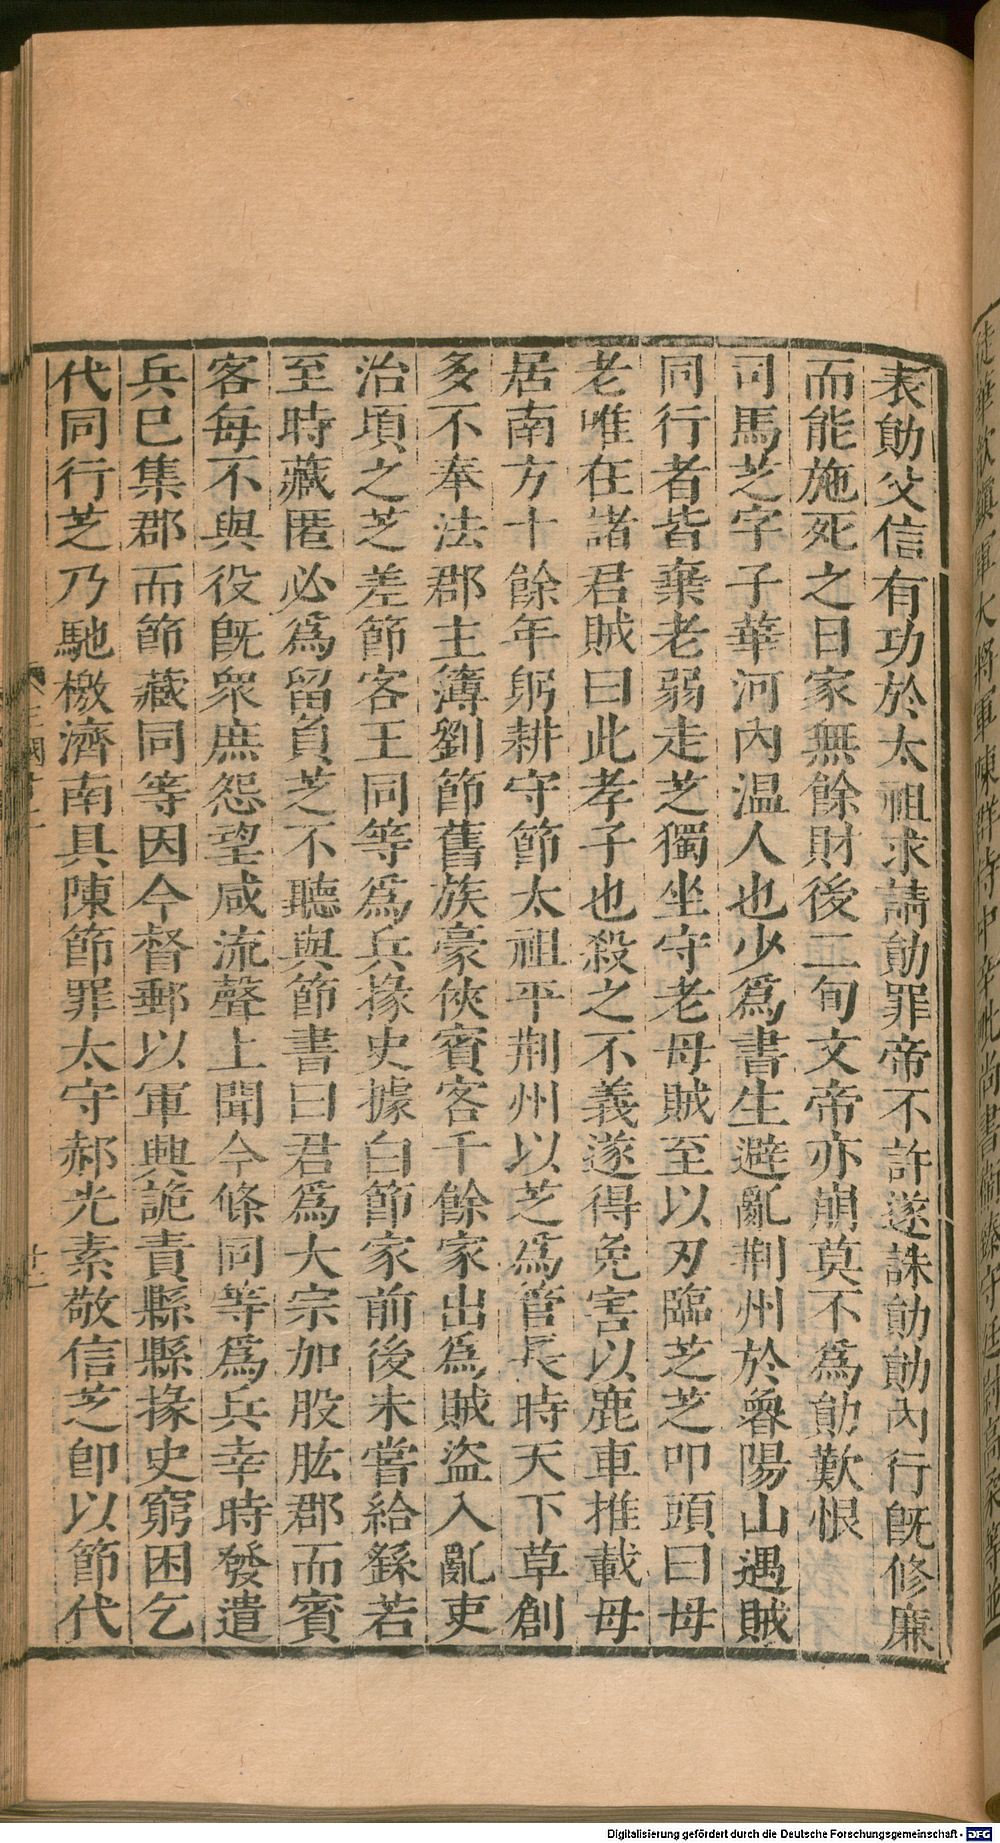 表勛父信有功於太祖求請勛罪帝不許遂誅勛勛內行旣修廉
而能施死之日家無餘財後二旬文帝亦崩莫不爲勛歎恨
司馬芝字子華河內温人也少爲書生避亂荆州於魯陽山遇賊
同行者皆棄老弱走芝獨坐守老母賊至以刃臨芝芝叩頭曰母
老唯在諸君賊曰此孝子也殺之不義遂得免害以鹿車推載母
居南方十餘年躬耕守節太祖平荆州以芝爲管長時天下草創
多不奉法郡主簿劉節舊族豪俠賓客千餘家出爲賊盜入亂吏
治頃之芝差節客王同等爲兵掾史據白節家前後未嘗給繇若
至時藏匿必爲留負芝不聽與節書曰君爲大宗加股肱郡而賓
客每不與役旣衆庶怨望咸流聲上聞今條同等爲兵幸時發遣
兵已集郡而節藏同等因令督郵以軍興詭責縣縣掾史窮困乞
代同行芝乃馳檄濟南具陳節罪太守郝光素敬信芝卽以節代
Digitalisierung gefördert durch die Deutsche Forschungsgemeinschaft - DFG